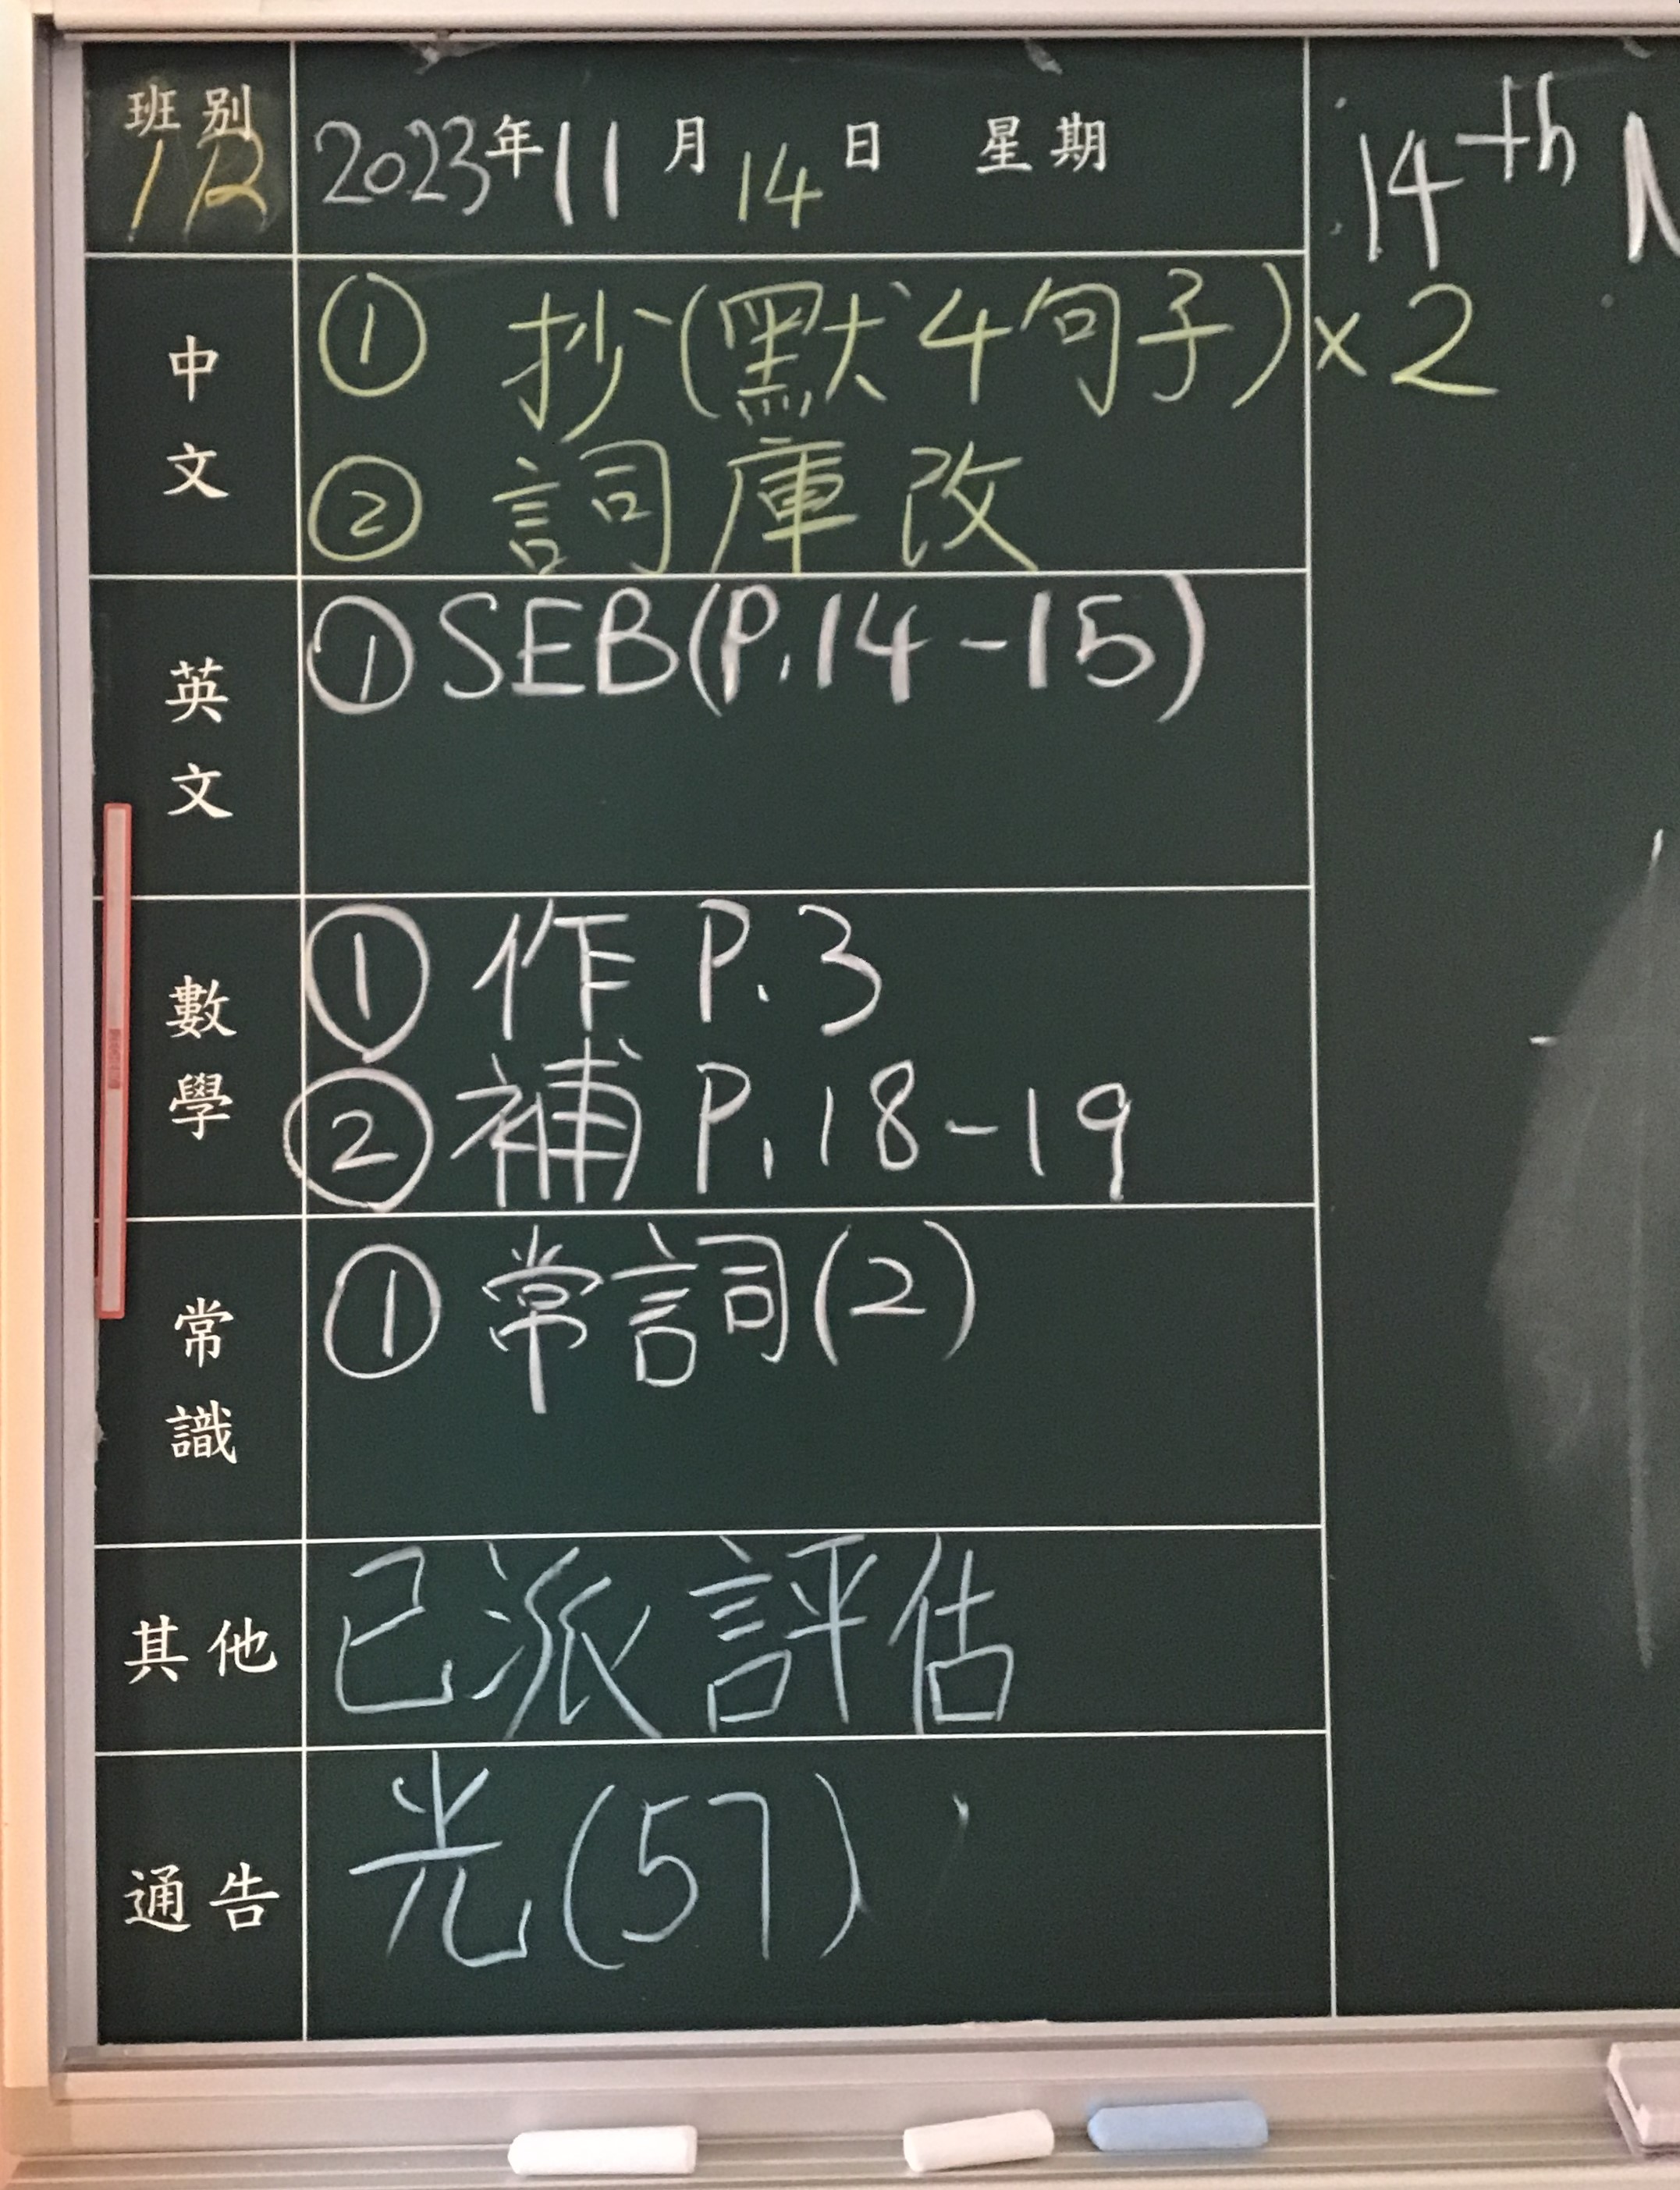 班別 2023年11月14日 星期
14th
中文
① 抄(默4句子)×2
② 詞庫改
英文
① SEB(P.14-15)
數學
① 作 P.3
② 補 P.18-19
常識
① 常詞(2)
其他 已派評估
通告 光(57)